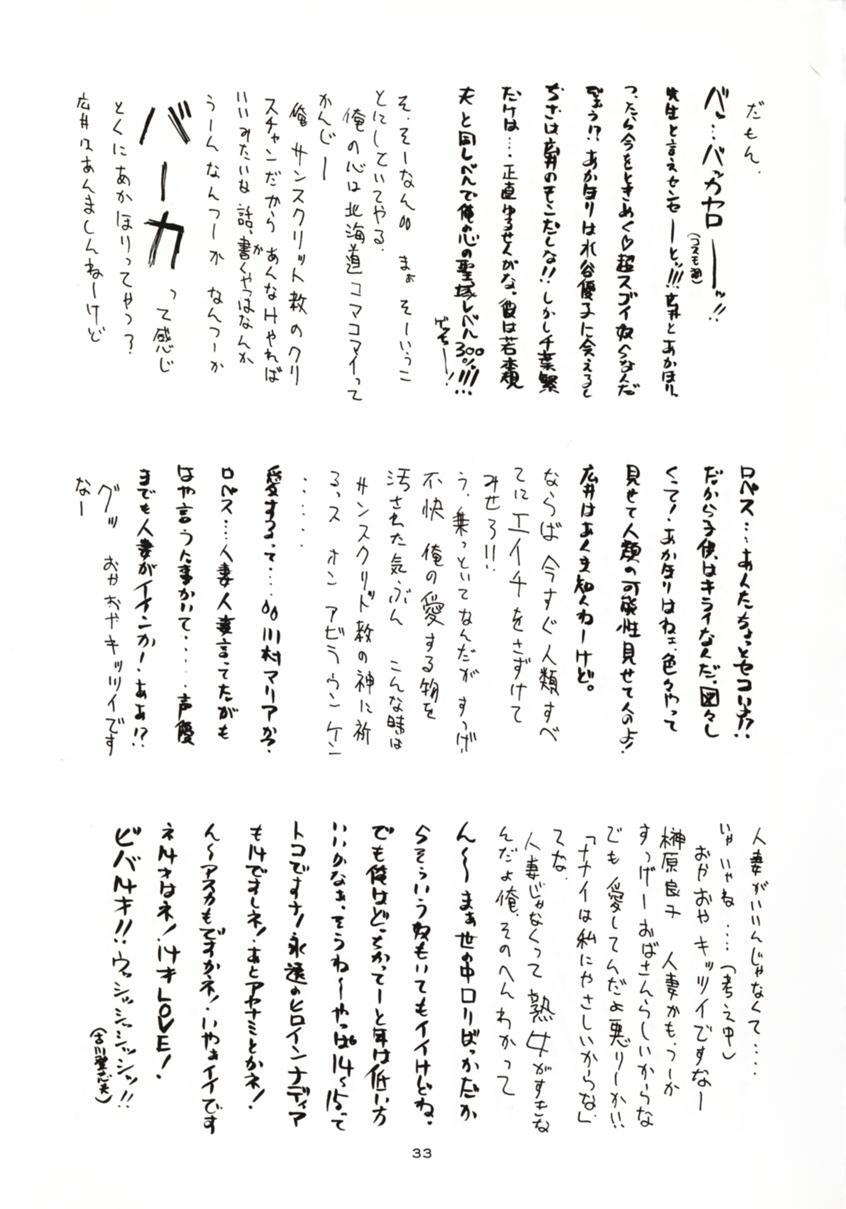 だもん.
バッ…バッカヤローーッ!!
(コスモ湯)
先生と言えセンセーーと!!! 広井とあかほりっ
つったら今をときめく♡超スゴイ奴らなんだ
ぞぅ!? あかほりは水谷優子に会えると
ちぎは広井のそこだしな!! しかし千葉繁
だけは…正直ゆるせんがな。彼は若本規
夫と同レベルで俺の心の聖域レベル300%!!!
ゲッセー!
そ.そーなん。 まぁ そーいうこ
とにしていてやる.
俺の心は北海道コマコマイって
かんじー
俺 サンスクリット教のクリ
スチャンだから あんなけやれば
いいみたいな話、書くやつはなんか
うーんなんつーか なんつーか
バーカ って感じ
とくにあかほりってやつ?
広井はあんましんねーけど
ロペス…あんたちょっとセコいよ!?
だから子供はキライなんだ。図々し
くって!あかほりはねェ、色々やって
見せて人類の可能性見せて人のよ!
広井はあくま知んねーけど。
ならば 今すぐ人類すべ
てにエイチをさずけて
みせろ!!
う. 乗っといてなんだが すっげ
不快 俺の愛する物を
汚された気ぶん こんな時は
サンスクリット教の神に祈
るっス オン アビラウンケン
・・・・・
愛するって…。川村マリアか?
ロペス…人妻人妻言ってたがも
はや言うに事かいて・・・・声優
までも人妻がイインか!ああ!?
グッ おやおやキッツイです
なー
人妻がいいんじゃなくて・・・・
いやいやね…. (考え中)
おやおや キッツイですなー
榊原良子 人妻かも.つーか
すっげーおばさんらしいからな
でも 愛してんだよ悪りーか!!
「ナナイは私にやさしいからな」
てな.
人妻じゃなくって 熟女がすきな
んだよ俺. そのへんわかって
ん〜〜まぁ世の中ロリばっかだか
らそういう奴もいてもイイけどね。
でも俺はどっちかってーと年は低い方
いいかなぁ。そうね〜やっぱ14〜15って
トコですナ!永遠のヒロインナディア
も14ですしネ!あとアヤナミとかネ!
ん〜アスカもですかネ!いやぁイイです
ネ14才はネ!14才LOVE!
ビバ14才!!ウッシッシッシッシッ!!
33